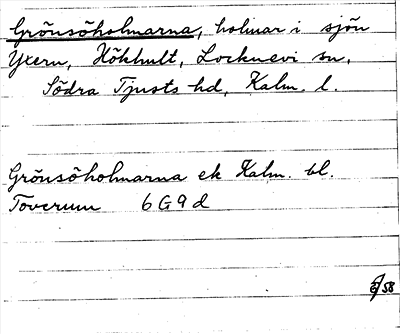 Grönsöholmarna, holmar i sjön
Yxern, Hökhult, Locknevi sn,
Södra Tjusts hd, Kalm. l.
Grönsöholmarna ek Kalm. bl.
Toverum 6G9d
58